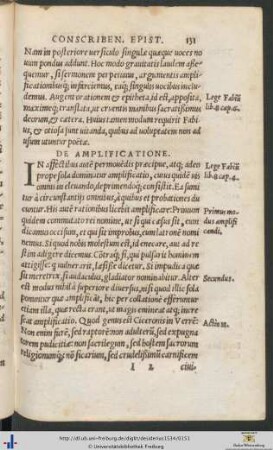 CONSCRIBEN. EPIST. 131
Nam in posteriore versiculo singulæ quæque voces no
uum pondus addunt. Hoc modo grauitatis laudem asse
quemur, si sermonem perpetuum, argumentis ampli
ficationibusq; infertiemus, eaq; singulis uocibus inclu
demus. Augent orationem & epitheta, id est, apposita,
maximeq; translata, ut cruentis manibus sacratissimum
decorum, & cætera. Huius tamen modum requirit Fabi
us, & otiosa iunt uitanda, quibus ad uoluptatem non ad
usum utuntur poetæ.
Lege Fabiũ
lib. 8 cap. 6.
DE AMPLIFICATIONE.
IN affectibus autẽ permouẽdis præcipue, atq; adeo
prope sola dominatur amplificatio, cuius quidẽ uis
omnis in eleuando, deprimendoq; consistit. Ea sumi
tur à circumstantijs omnibus, à quibus et probationes du
cuntur. His autẽ rationibus licebit amplificare. Primum
Lege Fabiũ
lib. 8 cap. 4.
quidem commutato rei nomine, ut si qui cæsus sit, eum
dicamus occisum, et qui sit improbus, eum latronẽ nomi
nemus. Si quod nobis molestum est, id enecare, aut ad re
stem adigere dicemus. Cõtra q; si, qui pulsarit hominem
attigisse: q; uulnerarit, læsisse dicetur. Si impudica quæ
Primus mo
dus amplifi
candi.
sit meretrix, si audaculus, gladiator nominabitur. Alter
est modus nihil à superiore diuersus, nisi quod illic sola
ponuntur quæ amplificãt, hic per collationẽ efferuntur
etiam illa, quæ recta erant, id magis emineat atq; incre
scat amplificatio. Quod genus est Ciceronis in Verrẽ:
Secundus.
Non enim furẽ, sed raptorẽ: non adulterũ, sed expugna
torem pudicitiæ: non sacrilegum, sed hostem sacrorum
religionumq; nõ sicarium, sed crudelissimũ carnificem
Act. in
I 2 ciui-
http://dl.ub.uni-freiburg.de/diglit/desiderius1534/0151
© Universitätsbibliothek Freiburg